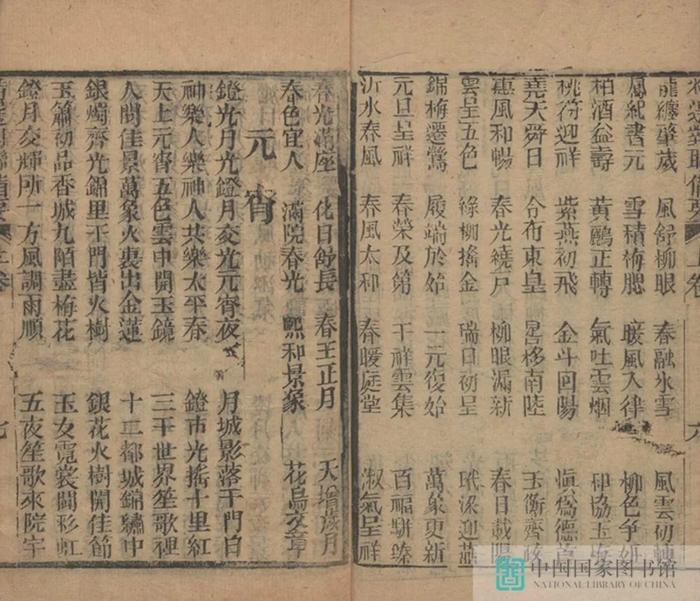 龍纏肇歲 風舒柳眼 春融氷雪 風雲初轉
鳳紀書元 雪積梅腮 暖風入律 柳色爭妍
柏酒益壽 黃鸝正轉 氣吐雲烟
桃符迎祥 紫燕初飛 金斗回陽
堯天舜日 合布東皇 星移南陸 玉衡齊
惠風和暢 春光繞戶 柳眼漏新 春日載陽
雲呈五色 綠柳搖金 瑞日初呈 玳梁迎燕
錦梅遷鶯 履端於始 一元復始 萬象更新
元旦呈祥 春榮及第 千祥雲集 百福駢臻
沂水春風 春風太和 春暖庭堂 淑氣呈祥
春光滿座 化日舒長 春王正月 天增歲月
春色宜人 滿院春光 熙和景象 花鳥文章
元宵
鐙光月光鐙月交光元宵夜 月城影落千門白
神樂人樂神人共樂太平春 鐙市光搖十里紅
天上元宵五色雲中開玉鏡 三千世界笙歌裡
人間佳景萬象火裏出金蓮 十二都城錦繡中
銀燭齊光錦里千門皆火樹 銀花火樹開佳節
玉簫初品香城九陌盡梅花 玉女霓裳鬪彩虹
鐙月交輝所一方風調雨順 五夜笙歌來院宇
上卷
六
上卷
七
中国国家图书馆
NATIONAL LIBRARY OF CHINA